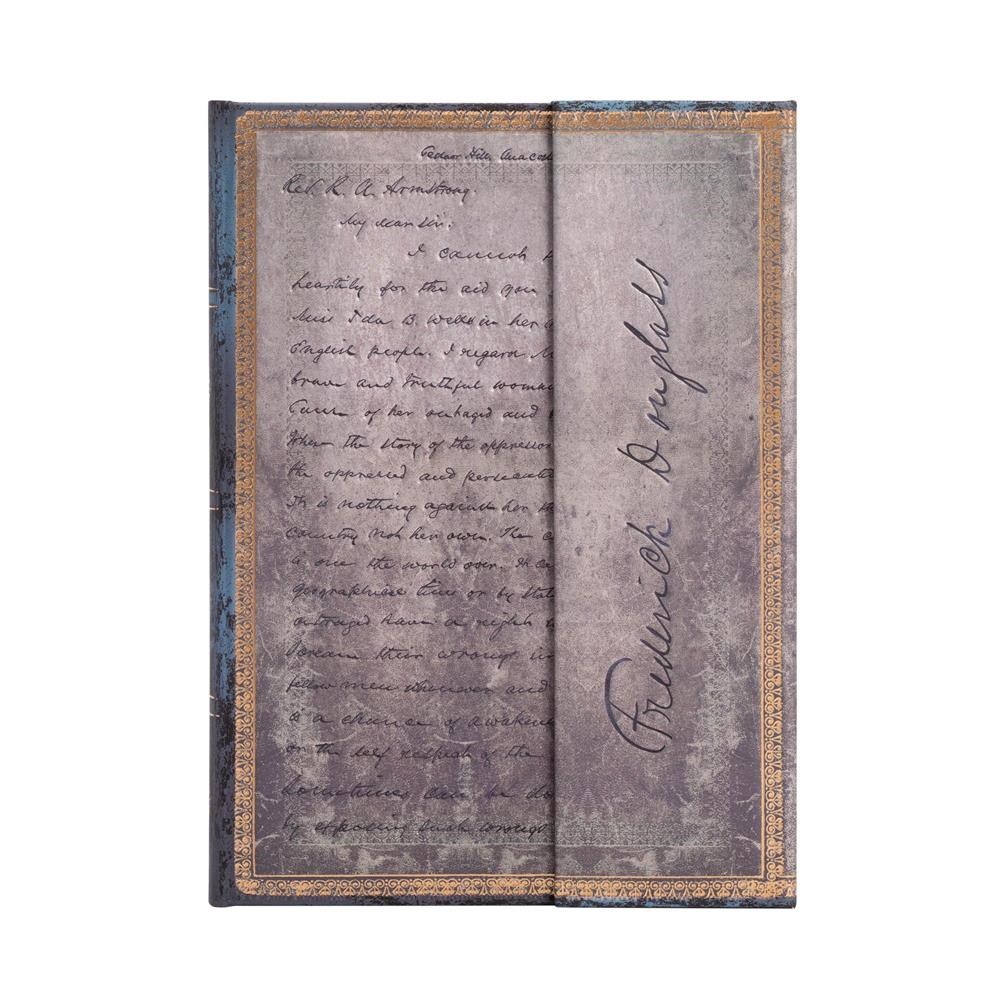 Cedar Hill, Anacost
Rev. R. A. Armstrong.
My dear Sir:
I cannot
heartily for the aid you
Miss Ida B. Wells in her
English people. I regard
brave and truthful woman
Cause of her outraged and
When the story of the oppressor
the oppressed and persecuted
It is nothing against her
country not her own. The
is one the world over.
geographical lines or by
outraged have a right
Scream their wrongs in
fellow men whenever and
is a chance of awakening
on the self respect of the
Sometimes can be do
by exposing such wrongs
Frederick Douglass